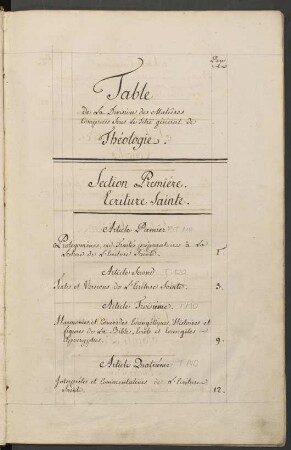 Pages
Table
de La Division des Matières
Comprises Sous Le titre général de
Théologie.
Section Première.
Ecriture Sainte.
Article Premier
Prolégomènes, ou Traités préparatoires à La
Lecture de L'Ecriture Sainte. 1.
Article Second
Textes et Versions de L'Ecriture Sainte. 3.
Article Troisième
Harmonies et Concordes Evangéliques, Histoires et
figures de La Bible, Ecrits et Evangiles
Apocryphes. 9.
Article Quatrième
Interprètes et Commentateurs de L'Ecriture
Sainte. 12.